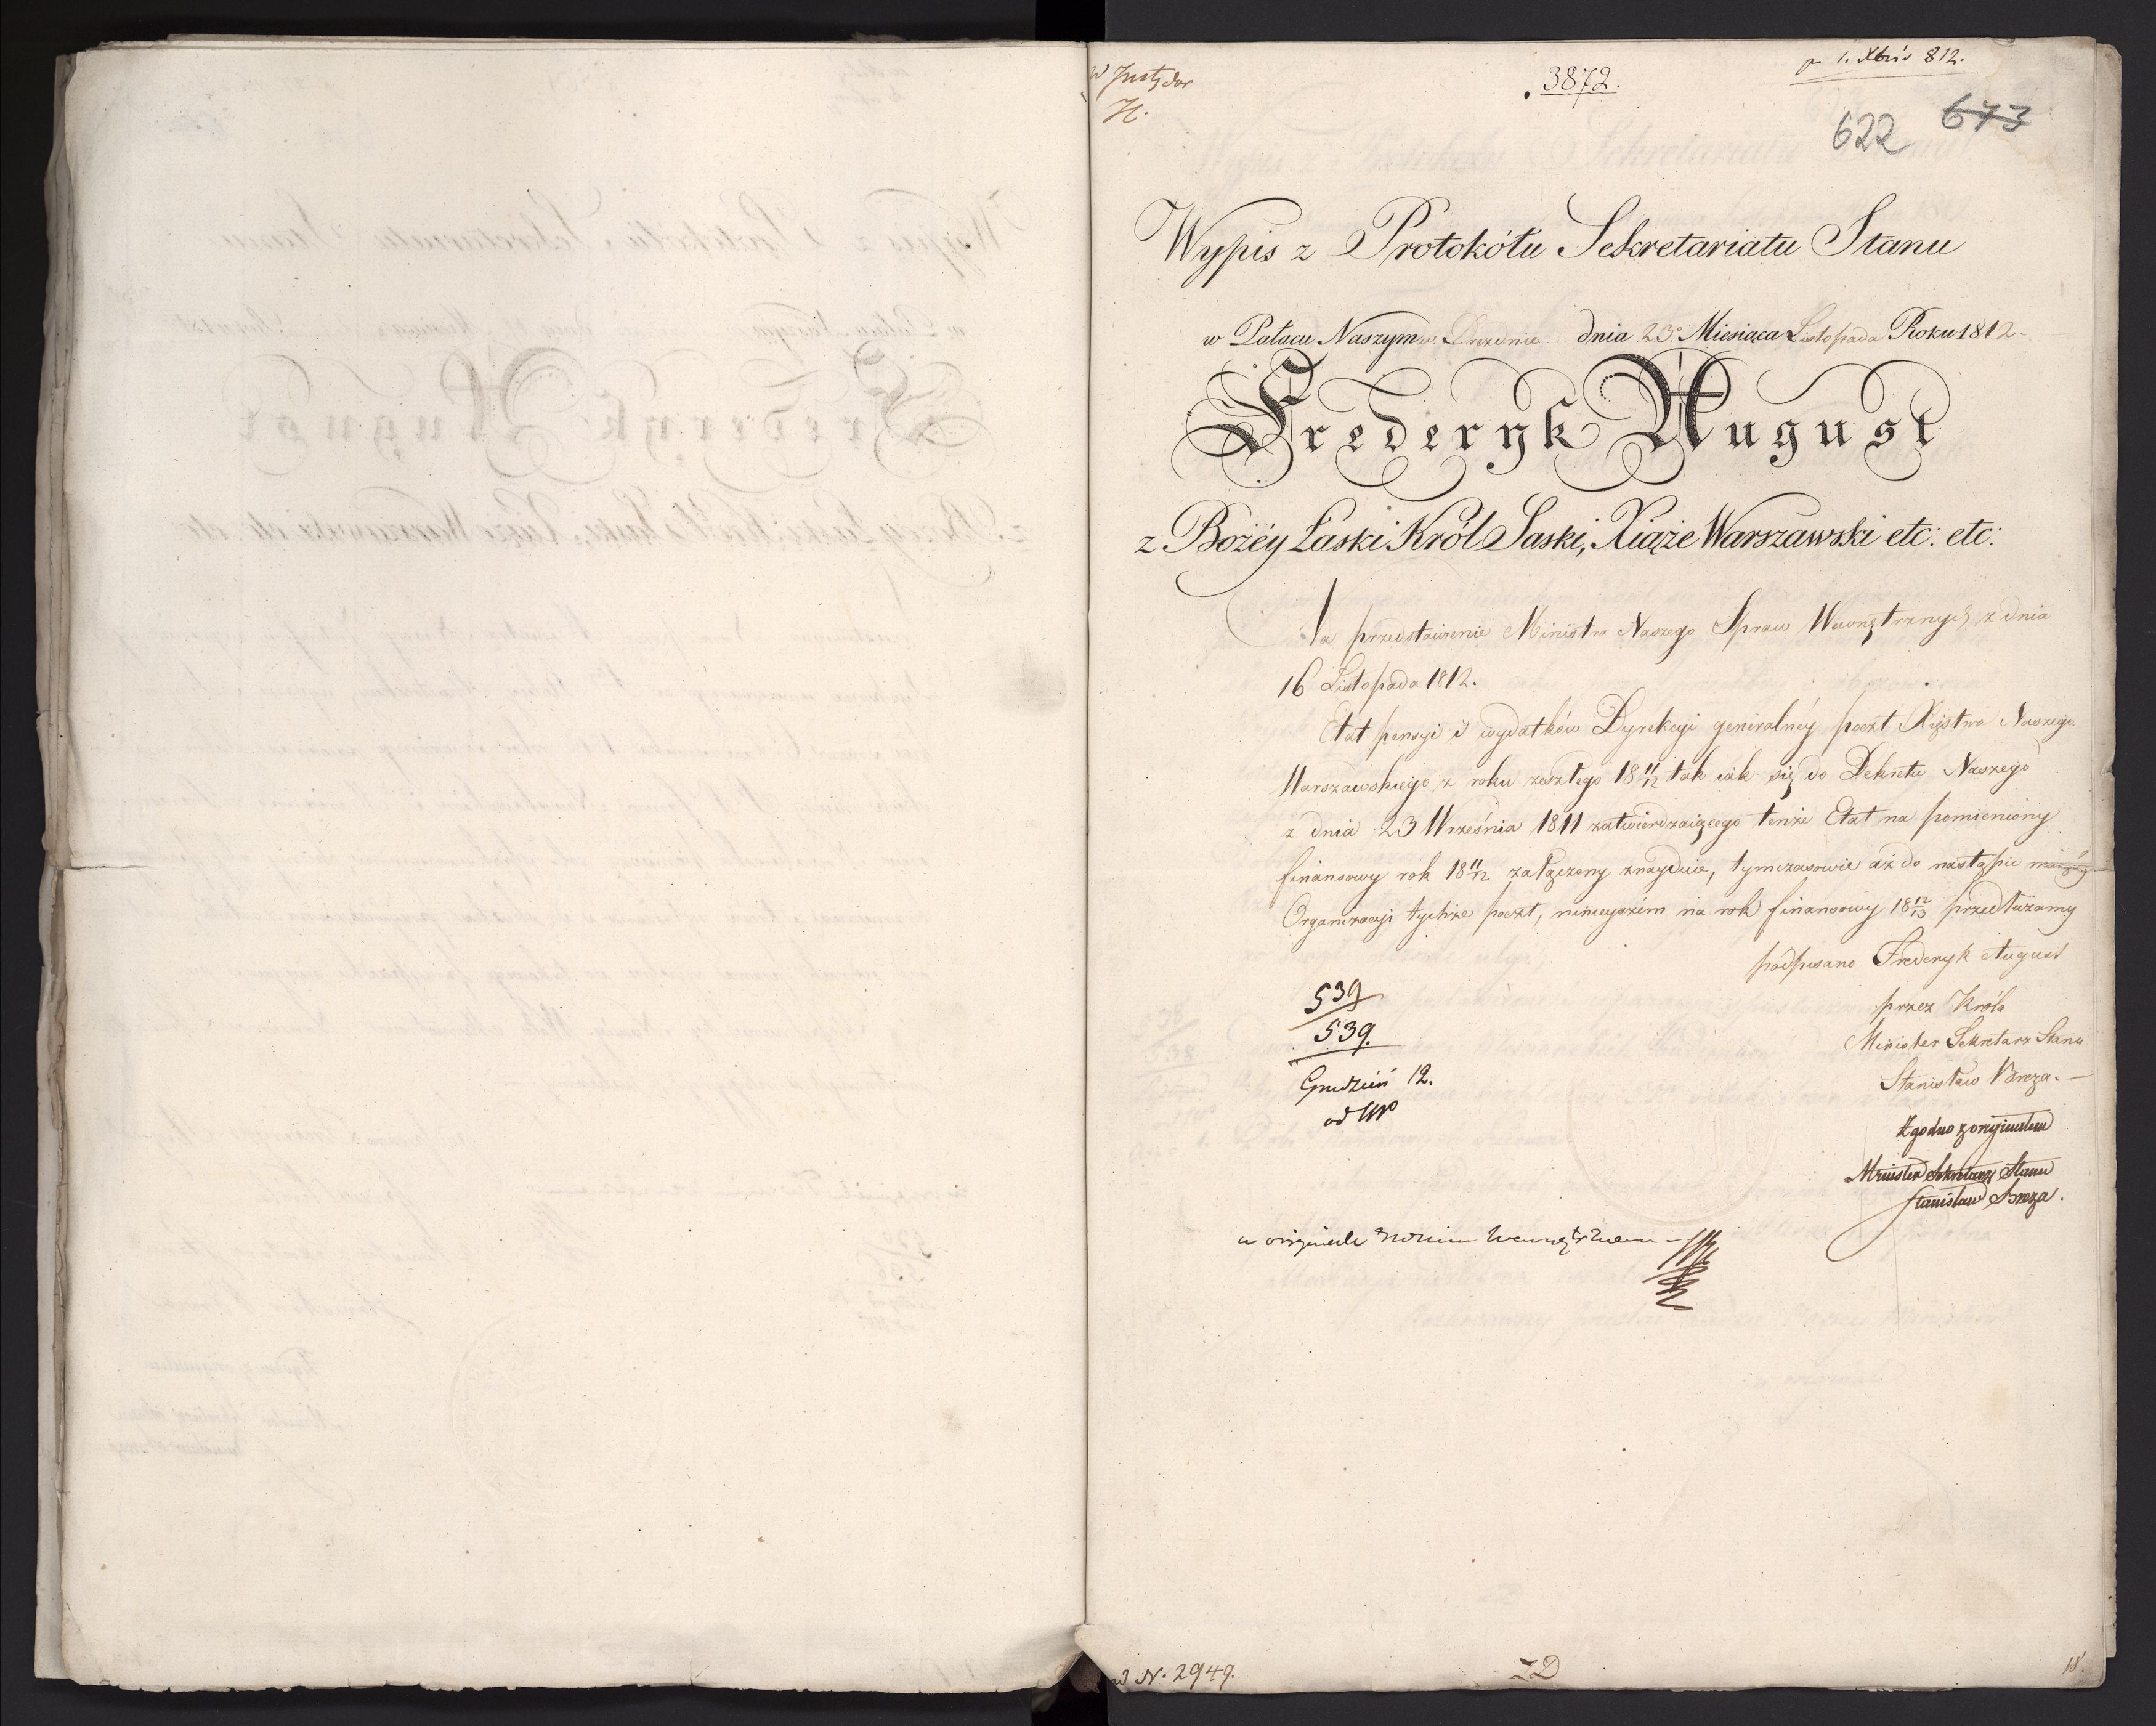 3872.
622 673
Wypis z Protokółu Sekretariatu Stanu
w Pałacu Naszym w Dreznie dnia 23° Miesiąca Listopada Roku 1812.
Frederyk August
z Bożéy Łaski Król Saski, Xiąże Warszawski etc: etc:
Na przedstawienie Ministra Naszego Spraw Wewnętrznych z dnia
16 Listopada 1812.
Etat pensyi i wydatków Dyrekcyi generalnéy poczt Xięstwa Naszego
Warszawskiego z roku zeszłego 18 11/12 tak iak się do Dekretu Naszego
z dnia 23 Września 1811 zatwierdzaiącego tenże Etat na pomieniony
finansowy rok 18 11/12 załączony znayduie, tymczasowie aż do nastąpić
Organizacyi tychże poczt, ninieyszém na rok finansowy 18 12/13 przedłużamy
podpisano Frederyk August
przez Króla
Minister Sekretarz Stanu
Stanisław Breza. —
Zgodno z oryginałem
Minister Sekretarz Stanu
Stanisław Breza.
539
539.
Grudzień 12.
w originale
N. 2949.
18.